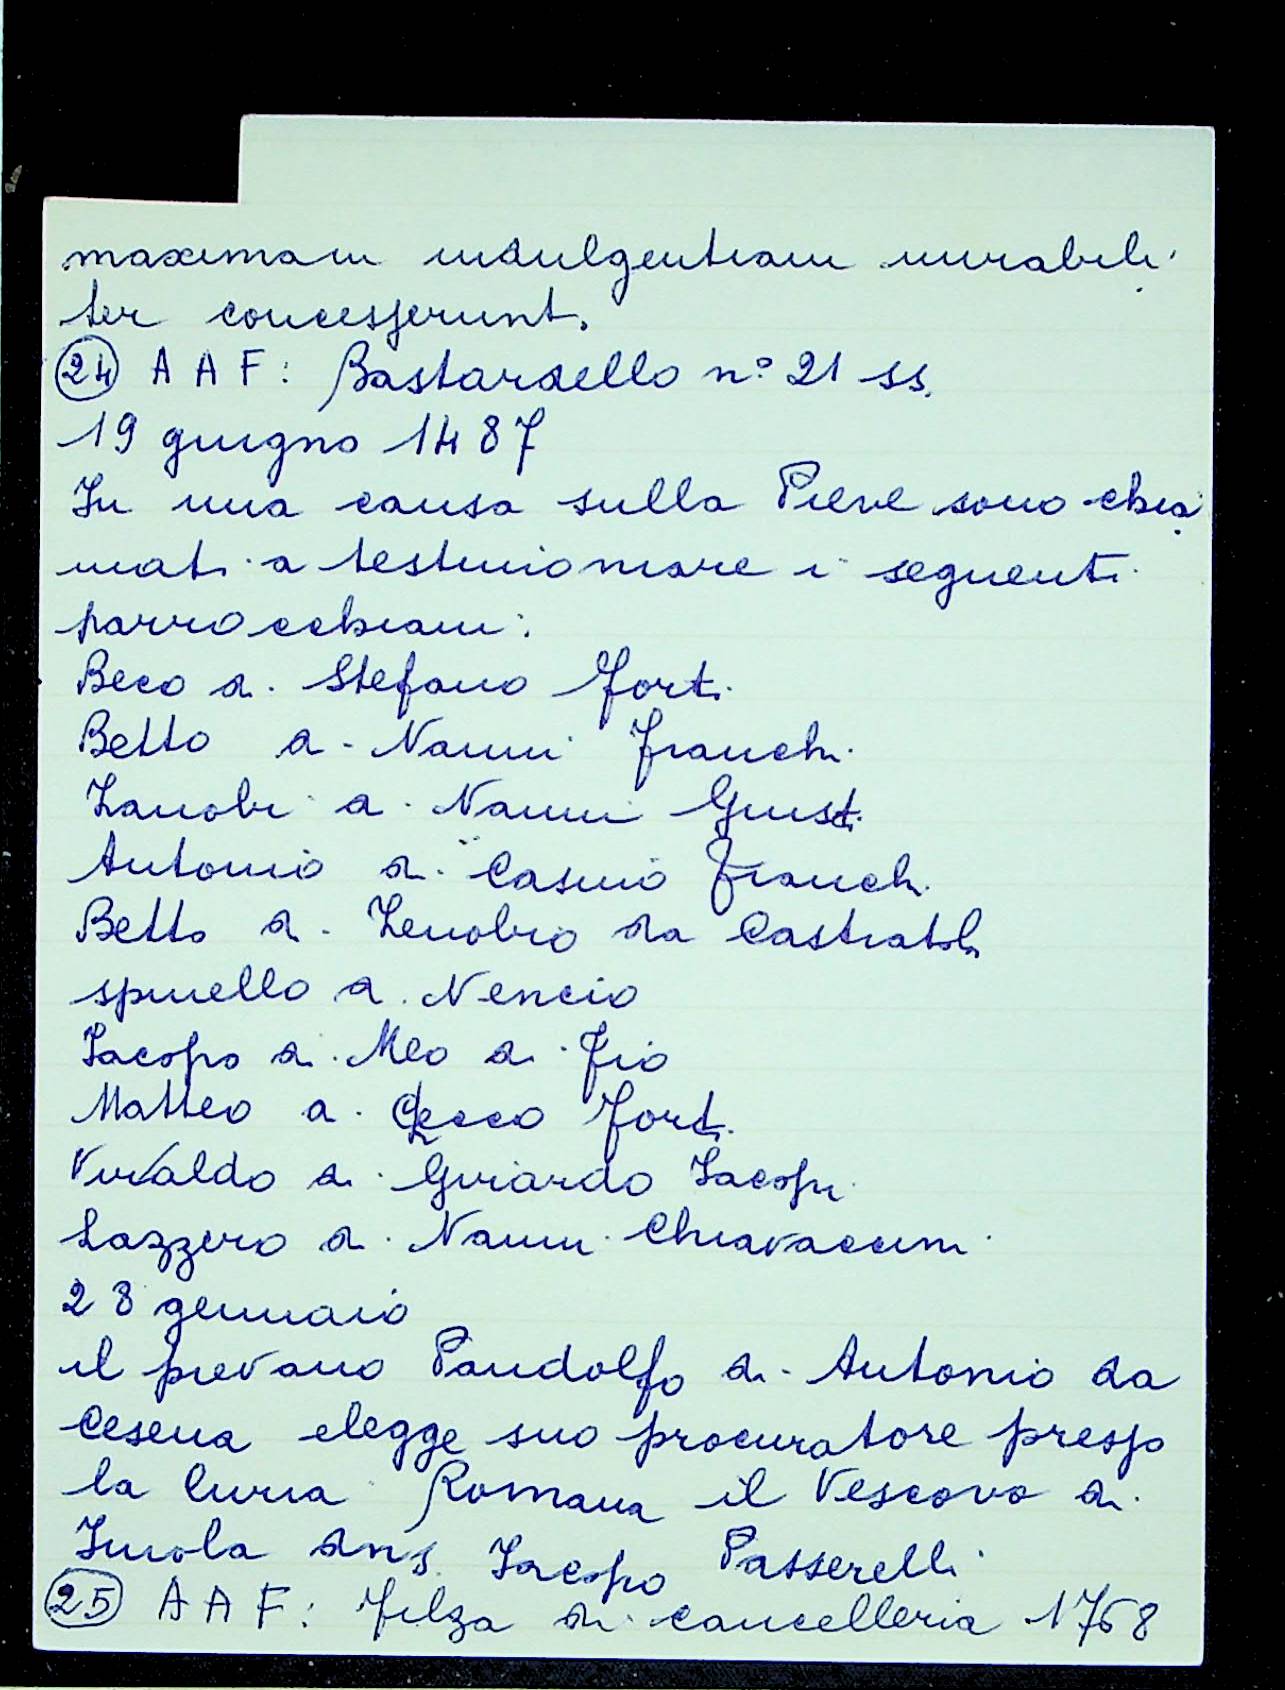 maximam indulgentiam mirabili-
ter concesserunt.
24 A A F: Bastardello n° 21 ss.
19 giugno 1487
In una causa sulla Pieve sono chia
mati a testimoniare i seguenti
parrocchiani:
Beco di Stefano Forti
Betto di Nanni Franchi
Zanobi di Nanni Giusti
Antonio di Casino Franchi
Betto di Zenobio da Castiatoli
spinello di Nencio
Iacopo di Meo di Fio
Matteo di Checco Forti
Vivaldo di Girardo Iacopi
Lazzero di Nanni Chiavaccini
28 gennaio
il pievano Pandolfo di Antonio da
Cesena elegge suo procuratore presso
la Curia Romana il Vescovo di
Imola dns Iacopo Passerelli
25 A A F: Filza di cancelleria 1768